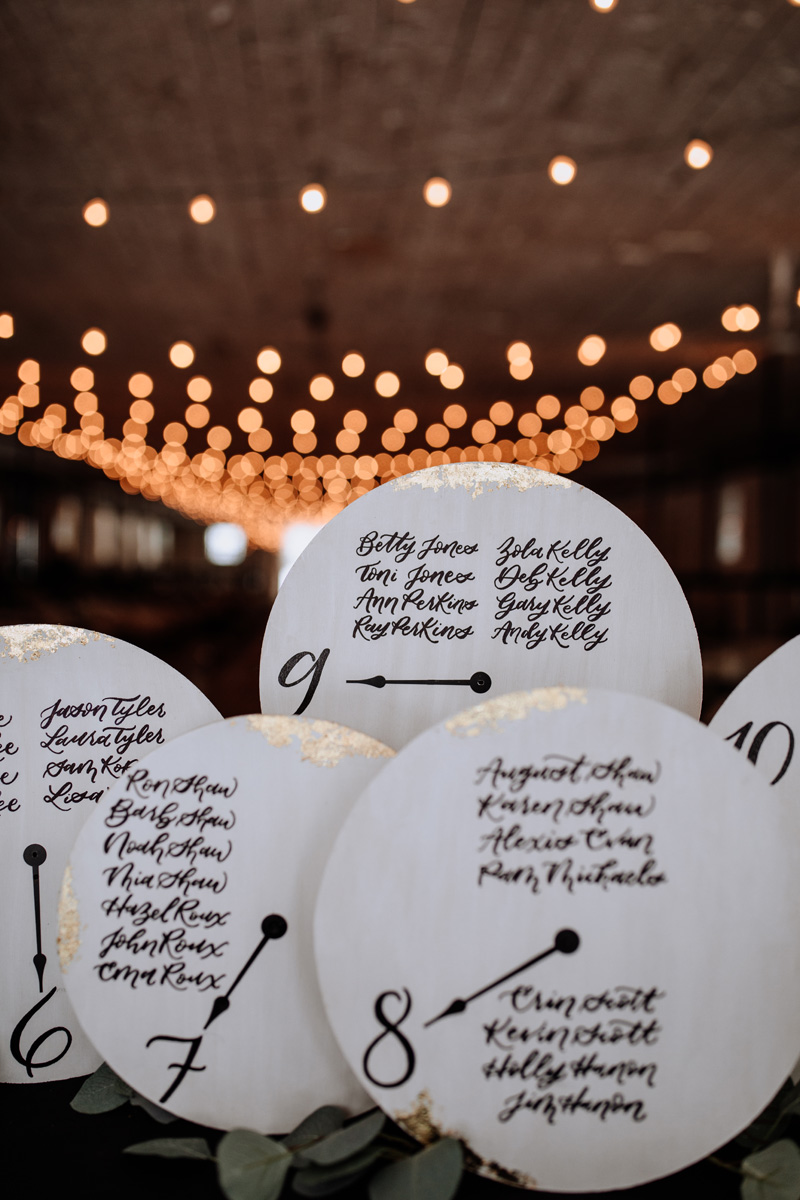 Betty Jones Zola Kelly
Toni Jones Deb Kelly
Ann Perkins Gary Kelly
Ray Perkins Andy Kelly
9
10
Jason Tyler
Laura Tyler
Sam
Lisa
6
Ron Shaw
Barb Shaw
Noah Shaw
Mia Shaw
Hazel Roux
John Roux
Ema Roux
7
August Shaw
Karen Shaw
Alexis Evan
Pam Michaels
8
Erin Scott
Kevin Scott
Holly Hanon
Jim Hanon